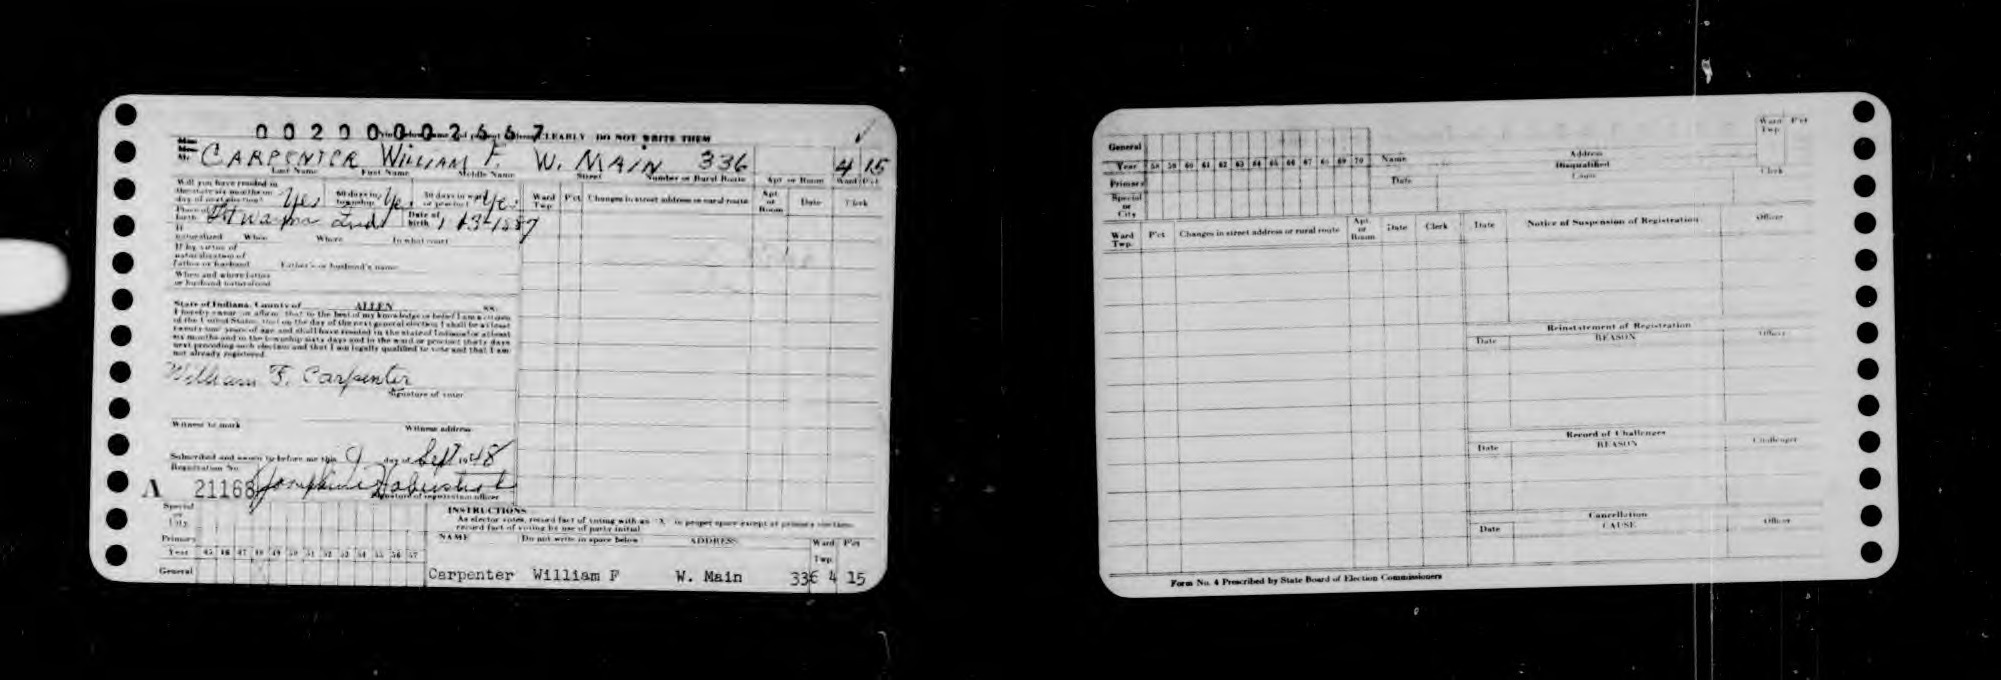 00200002667 CLEARLY DO NOT WRITE THEM
CARPENTER WILLIAM F. W. MAIN 336 4 15
Last Name First Name Middle Name Street Number or Rural Route Apt or Room Ward Pct
Will you have resided in
the state six months on Yes 60 days in Yes 30 days in ward Yes
day of next election? township or precinct
Place of birth Ft Wayne Ind Date of birth
If naturalized When Where In what court
If by virtue of
naturalization of
Father or husband Father's or husband's name
When and where father
or husband naturalized
State of Indiana, County of ALLEN ss:
I hereby swear or affirm that to the best of my knowledge or belief I am a citizen
of the United States, that on the day of the next general election I shall be at least
twenty-one years of age and shall have resided in the state of Indiana for at least
six months and in the township sixty days and in the ward or precinct thirty days
next preceding such election and that I am legally qualified to vote and that I am
not already registered.
William F. Carpenter
Signature of voter
Witness to mark Witness address
Subscribed and sworn to before me this 9 day of Sept 1948
Registration No.
A 21168
Signature of registration officer
Ward Twp. P'ct Changes in street address or rural route Apt. or Room Date Clerk
Special or City
Primary
Year 45 46 47 48 49 50 51 52 53 54 55 56 57
General
INSTRUCTIONS
As elector votes, record fact of voting with an "X" in proper space except at primary election,
record fact of voting by use of party initial
NAME Do not write in space below ADDRESS Ward Twp. P'ct
Carpenter William F W. Main 336 4 15
General
Year 58 59 60 61 62 63 64 65 66 67 68 69 70
Primary
Special or City
Name Address Ward Twp. P'ct
Disqualified
Date Cause Clerk
Ward Twp. P'ct Changes in street address or rural route Apt. or Room Date Clerk
Date Notice of Suspension of Registration Officer
Reinstatement of Registration
Date REASON Officer
Record of Challenges
Date REASON Challenger
Cancellation
Date CAUSE Officer
Form No. 4 Prescribed by State Board of Election Commissioners